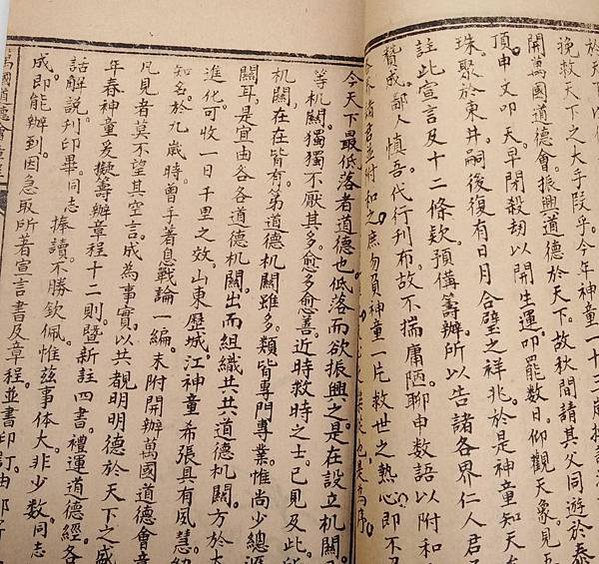 於天下以
挽救天下之大手段乎。今年神童一十二歲
開萬國道德會。振興道德於天下。故秋間請其父同遊於泰
頂。申文叩天。早閉殺劫以開生運。叩罷数日。仰觀天象。見五
珠聚於東井。嗣後復有日月合璧之祥兆。於是神童知天
註此宣言及十二條欵。預備籌辦。所以告諸各界仁人君
贊成。鄙人慎吾。代行刊布。故不揣庸陋。聊申数語以附和
諸君並附和之。庶勿負神童一片救世之熱心。即不
今天下最低落者道德也。低落而欲振興之。是在設立機關。
等机關。獨獨不厭其多。愈多愈善。近時救時之士。已見及此。所
机關在在皆有。第道德机關雖多。類皆專門專業。惟尚少總滙
關耳。是宜由各各道德机關。出而組織共共道德机關。方於大
進化。可收一日千里之效。山東歷城江神童 希張具有夙慧。幼
知名。於九歲時。曾手著息戰論一編。末附開辦萬國道德會意
凡見者莫不望其空言。成為事實。以共覩明明德於天下之盛
年春神童爰擬籌辦章程十二則。暨新註四書。禮運道德經。各
話解說。刊印畢。同志 捧讀。不勝欽佩。惟兹事体大。非少数同志
成。即能辦到。因急取所著宣言書及章程。並書印訂。由
萬國道德會